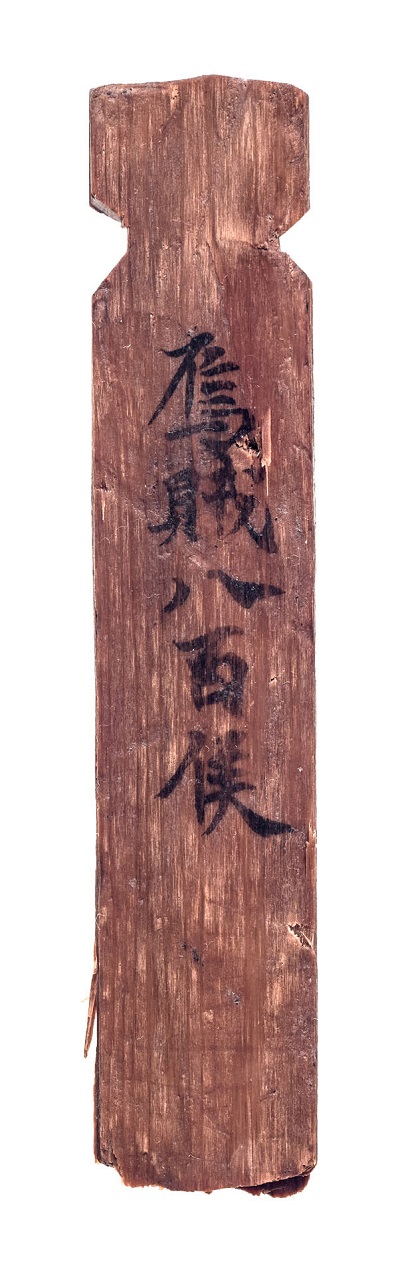 烏賊八百隻